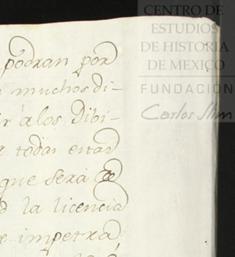 CENTRO DE
ESTUDIOS
DE HISTORIA
DE MEXICO
FUNDACIÓN
Carlos Slim
podran por
muchos di-
ir á los Dibi-
todas estas
que será de
la licencia
impetra